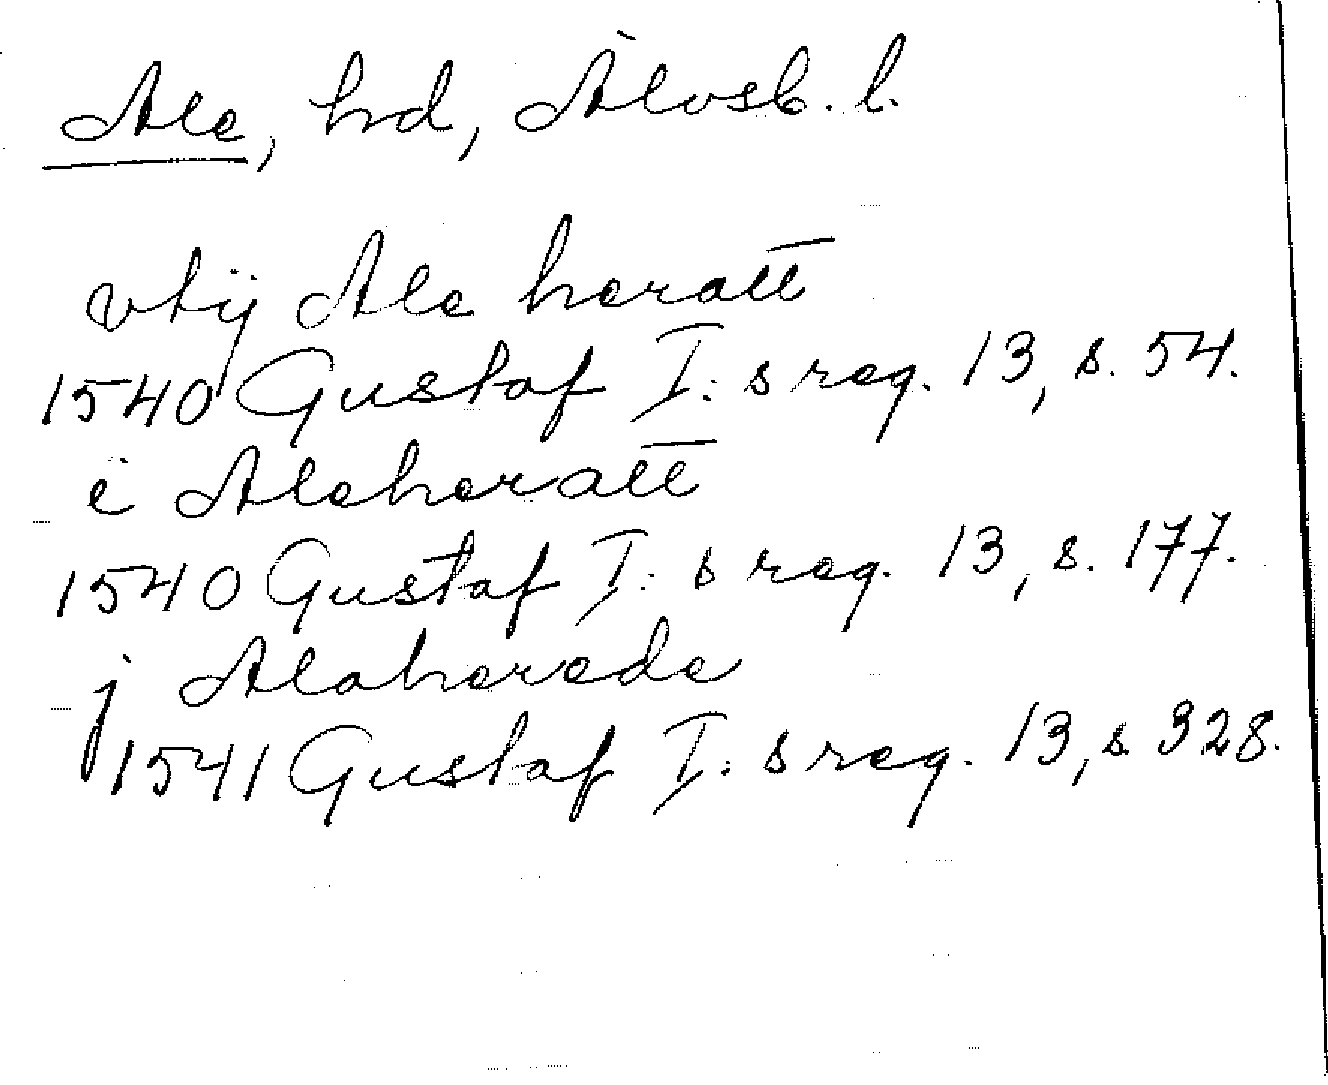 Ale, hd, Älvsb. l.
vtij Ale heratt
1540 Gustaf I:s reg. 13, s. 54.
i Aleheratt
1540 Gustaf I:s reg. 13, s. 177.
j Aleherede
1541 Gustaf I:s reg. 13, s. 328.